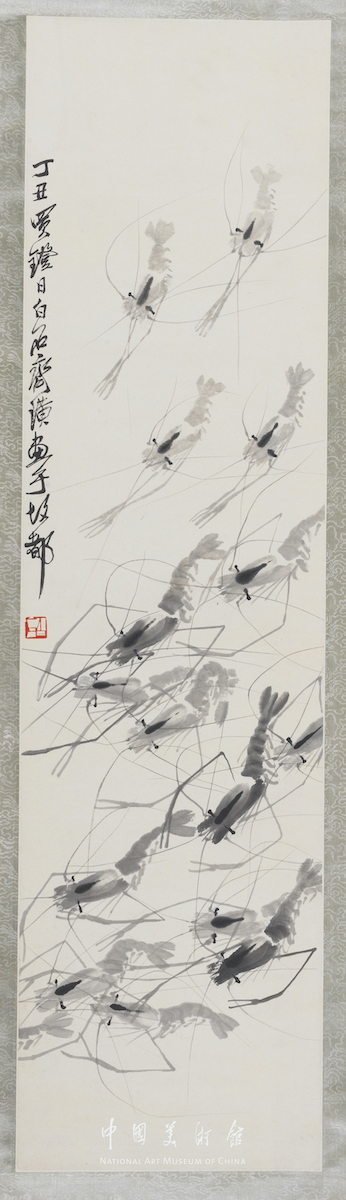 丁丑買鐙日白石齊璜画于故都
中國美術館
NATIONAL ART MUSEUM OF CHINA